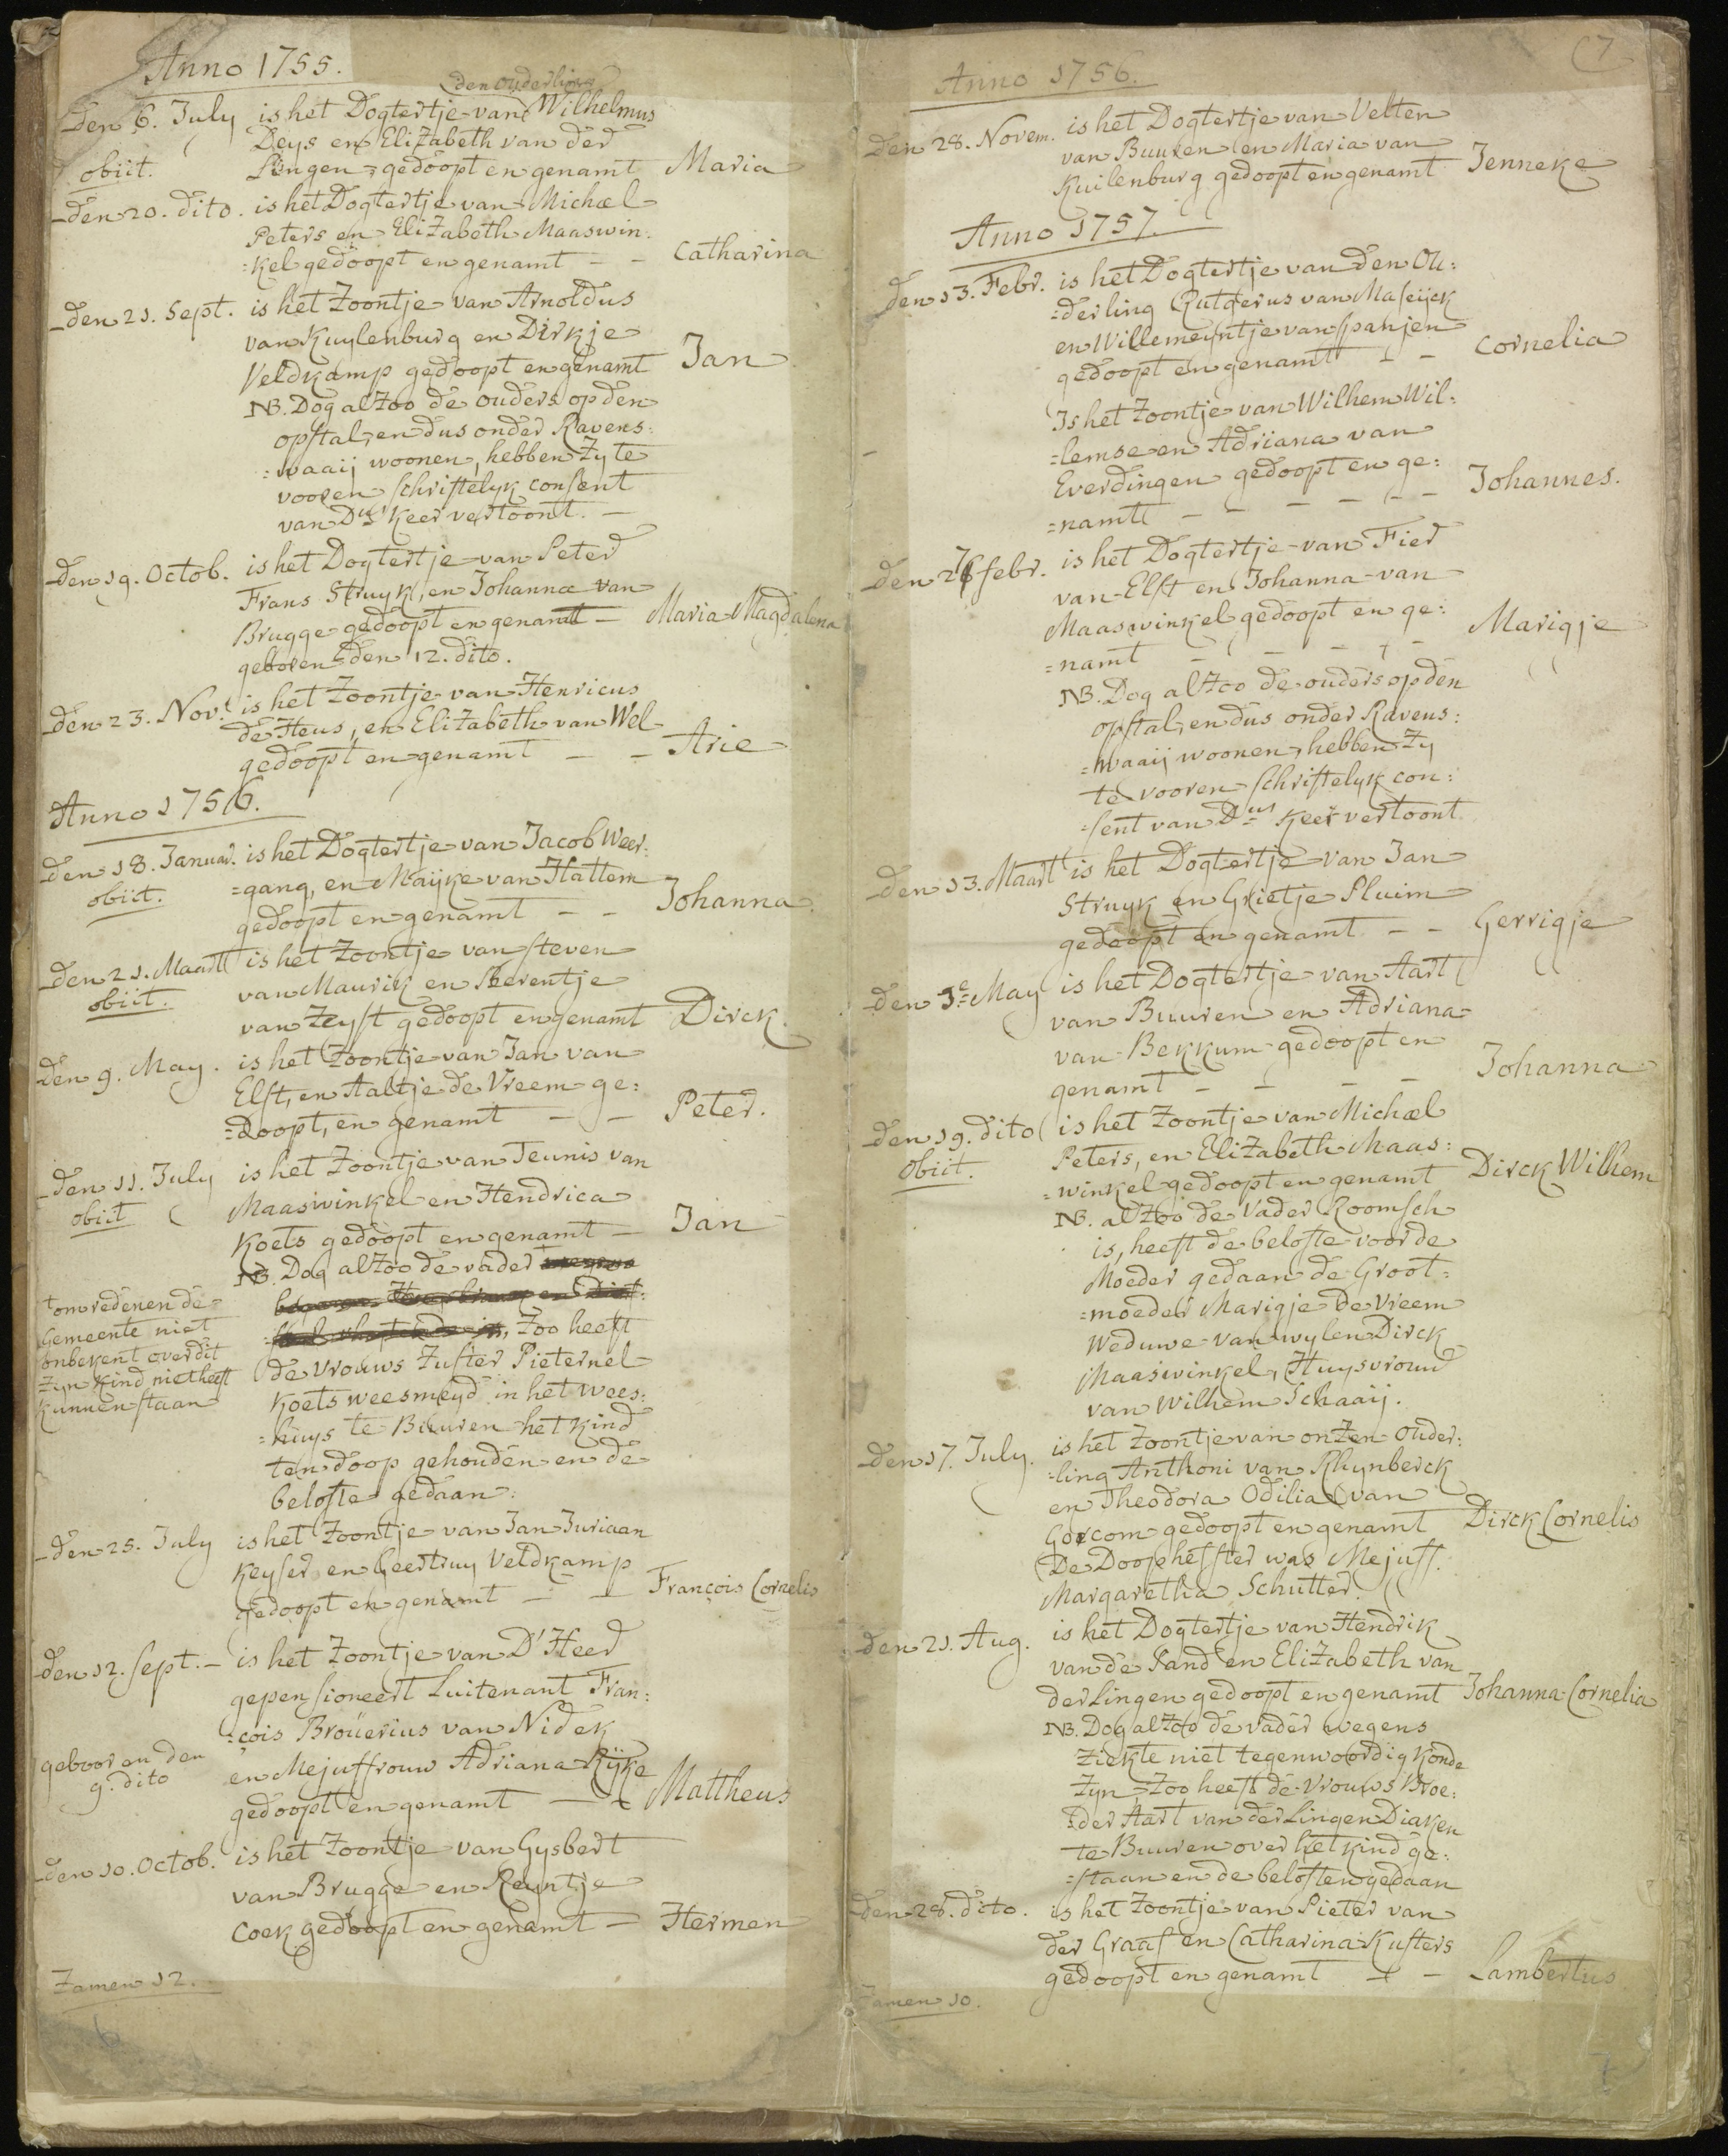 Anno 1755.
den ouderling
Den 6. July is het Dogtertje van Wilhelmus
Deys en Elizabeth van der
obiit. Lingen, gedoopt en genamt Maria
den 20. dito. is het Dogtertje van Michael
Peters en Elizabeth Maaswin:
=kel gedoopt en genamt - - Catharina
den 21. Sept. is het Zoontje van Arnoldus
van Kuylenburg en Dirkje
Veldkamp gedoopt en genamt Jan
NB. Dog alzoo de ouders op den
opstal, en dus onder Ravens:
=waaij woonen, hebben zy te
vooren schriftelyk consent
van Dus Keer vertoont. -
den 19. Octob. is het Dogtertje van Peter
Frans Struyk, en Johanna van
Brugge gedoopt en genamt - Maria Magdalena
geboren den 12. dito.
den 23. Nov. is het Zoontje van Henricus
de Heus, en Elizabeth van Wel
gedoopt en genamt - - Arie
Anno 1756.
den 18. Januar. is het Dogtertje van Jacob Weer:
obiit. =gang, en Maijke van Hattem
gedoopt en genamt - - Johanna.
den 21. Maart is het Zoontje van Steven
obiit. van Maurik en Beerentje
van Zeyst gedoopt en genamt Dirck.
den 9. May. is het Zoontje van Jan van
Elst, en Aaltje de Vreem ge:
=doopt, en genamt - - Peter.
den 11. July is het Zoontje van Teunis van
obiit Maaswinkel en Hendrica
Koets gedoopt en genamt - Jan
NB. Dog alzoo de vader
zoo heeft
om redenen de
Gemeente niet
onbekent over dit
zyn kind niet heeft
kunnen staan
de vrouws zuster Pieternel
Koets weesmeyd in het wees:
=huys te Buuren het kind
ten doop gehouden en de
belofte gedaan.
den 25. July is het Zoontje van Jan Juriaan
Keyser en Geertruy Veldkamp
gedoopt en genamt - - François Cornelis
den 12. Sept. - is het Zoontje van D'Heer
gepensioneert Luitenant Fran:
=cois Broüerius van Nidek
gebooren den
9. dito
en Mejuffrouw Adriana Rijke
gedoopt en genamt - - Mattheus
den 10. Octob. is het Zoontje van Gysbert
van Brugge en Reyntje
Coek gedoopt en genamt - Hermen
Zamen 12.
6
7
Anno 1756.
Den 28. Novem. is het Dogtertje van Velten
van Buuren en Maria van
Kuilenburg gedoopt en genamt Jenneke
Anno 1757.
den 13. Febr. is het Dogtertje van den Ou:
=derling Rutgerus van Maseijck
en Willemeyntje van Spanjen
gedoopt en genamt - - Cornelia
Is het Zoontje van Wilhem Wil:
=lemse en Adriana van
Everdingen gedoopt en ge:
=namt - - - - - Johannes.
Den 27 febr. is het Dogtertje van Fier
van Elst en Johanna van
Maaswinkel gedoopt en ge:
=namt - - - - - Marigje
NB. Dog alzoo de ouders op den
opstal, en dus onder Ravens:
=waaij woonen, hebben zy
te vooren schriftelyk con:
=sent van Dus Keer vertoont.
den 13. Maart is het Dogtertje van Jan
Struyk en Grietje Pluim
gedoopt en genamt - - Gerrigje
den 3e May is het Dogtertje van Aart
van Buuren en Adriana
van Bekkum gedoopt en
genamt - - - - Johanna
den 19. dito is het Zoontje van Michael
obiit. Peters, en Elizabeth Maas:
=winkel gedoopt en genamt Dirck Wilhem
NB. alzoo de Vader Roomsch
is, heeft de belofte voor de
Moeder gedaan de Groot=
=moeder Marigje de Vreem
Weduwe van wylen Dirck
Maaswinkel, Huysvrouw
van Wilhem Schaaij.
den 17. July. is het Zoontje van onzen Ouder:
=ling Anthoni van Rhynberck
en Theodora Odilia van
Gorcom gedoopt en genamt Dirck Cornelis
De Doophefster was Mejuff.
Margaretha Schutter.
den 21. Aug. is het Dogtertje van Hendrik
van de Sand en Elizabeth van
der Lingen gedoopt en genamt Johanna Cornelia
NB. Dog alzoo de vader wegens
ziekte niet tegenwoordig konde
zyn, zoo heeft de vrouws Broe:
=der Aart van der Lingen Diaken
te Buuren over het kind ge:
=staan en de beloften gedaan
den 28. dito. is het Zoontje van Pieter van
der Graaf en Catharina Kusters
gedoopt en genamt - - Lambertus
Zamen 10.
7